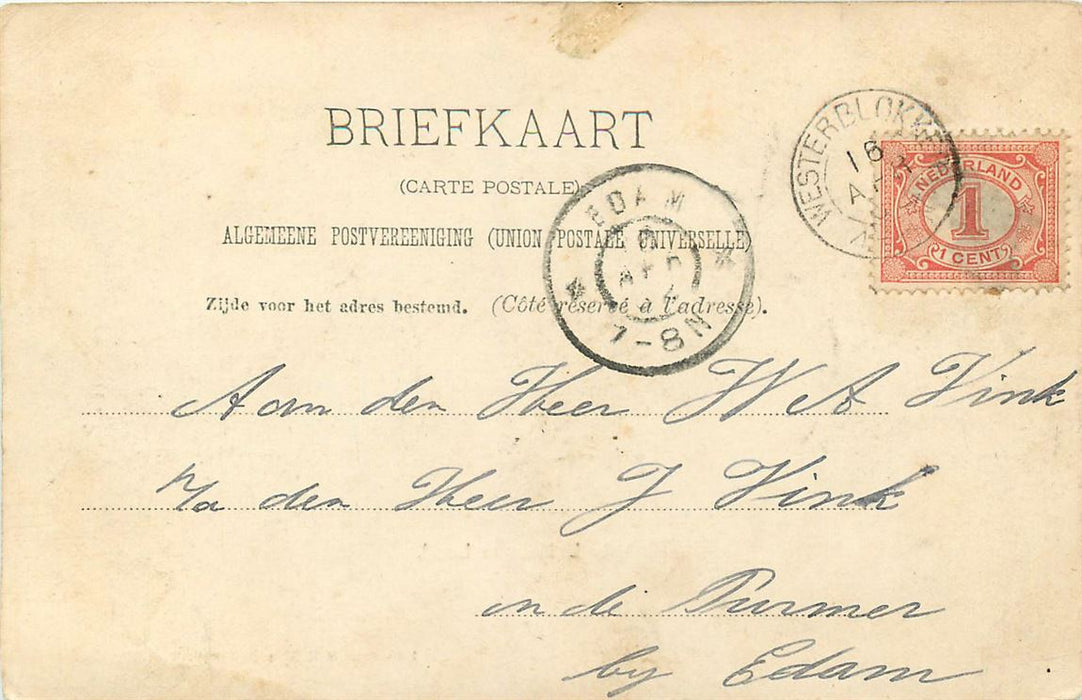 BRIEFKAART
(CARTE POSTALE)
ALGEMEENE POSTVEREENIGING (UNION POSTALE UNIVERSELLE)
Zijde voor het adres bestemd. (Côté réservé à l'adresse).
WESTERBLOKKER
16
EDAM
7-8N
NEDERLAND
1
1 CENT
Aan den Heer W A Vink
p/a den Heer J Vink
in de Purmer
by Edam